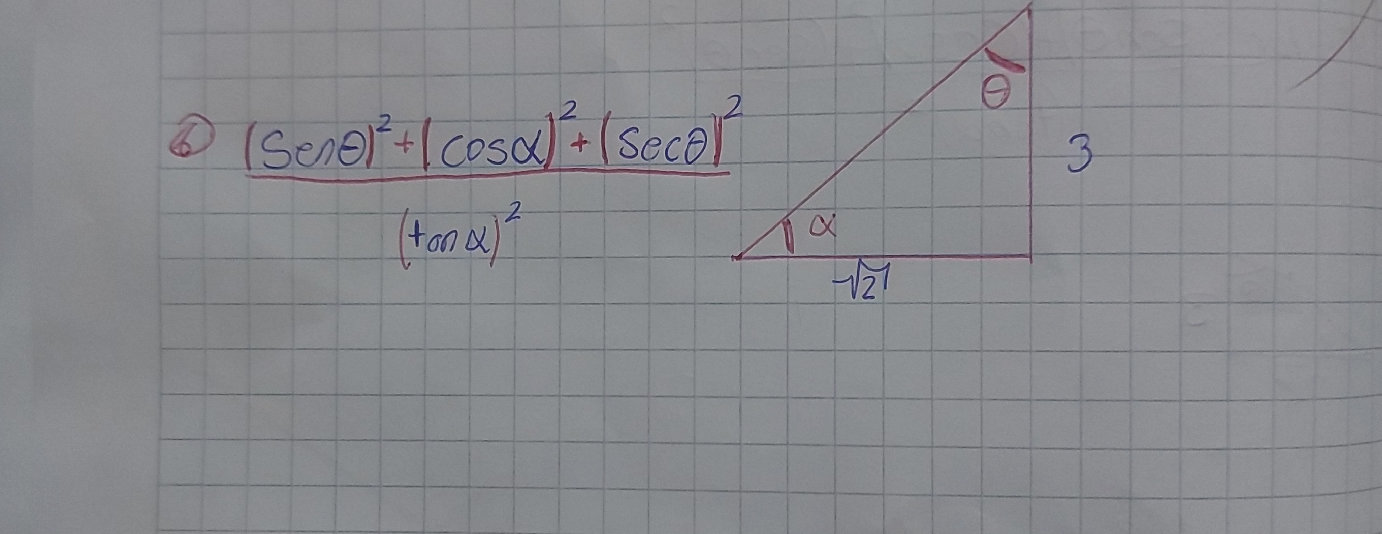 6 (Senθ)² + (cosα)² + (Secθ)²
(tanα)²
θ
3
α
√2